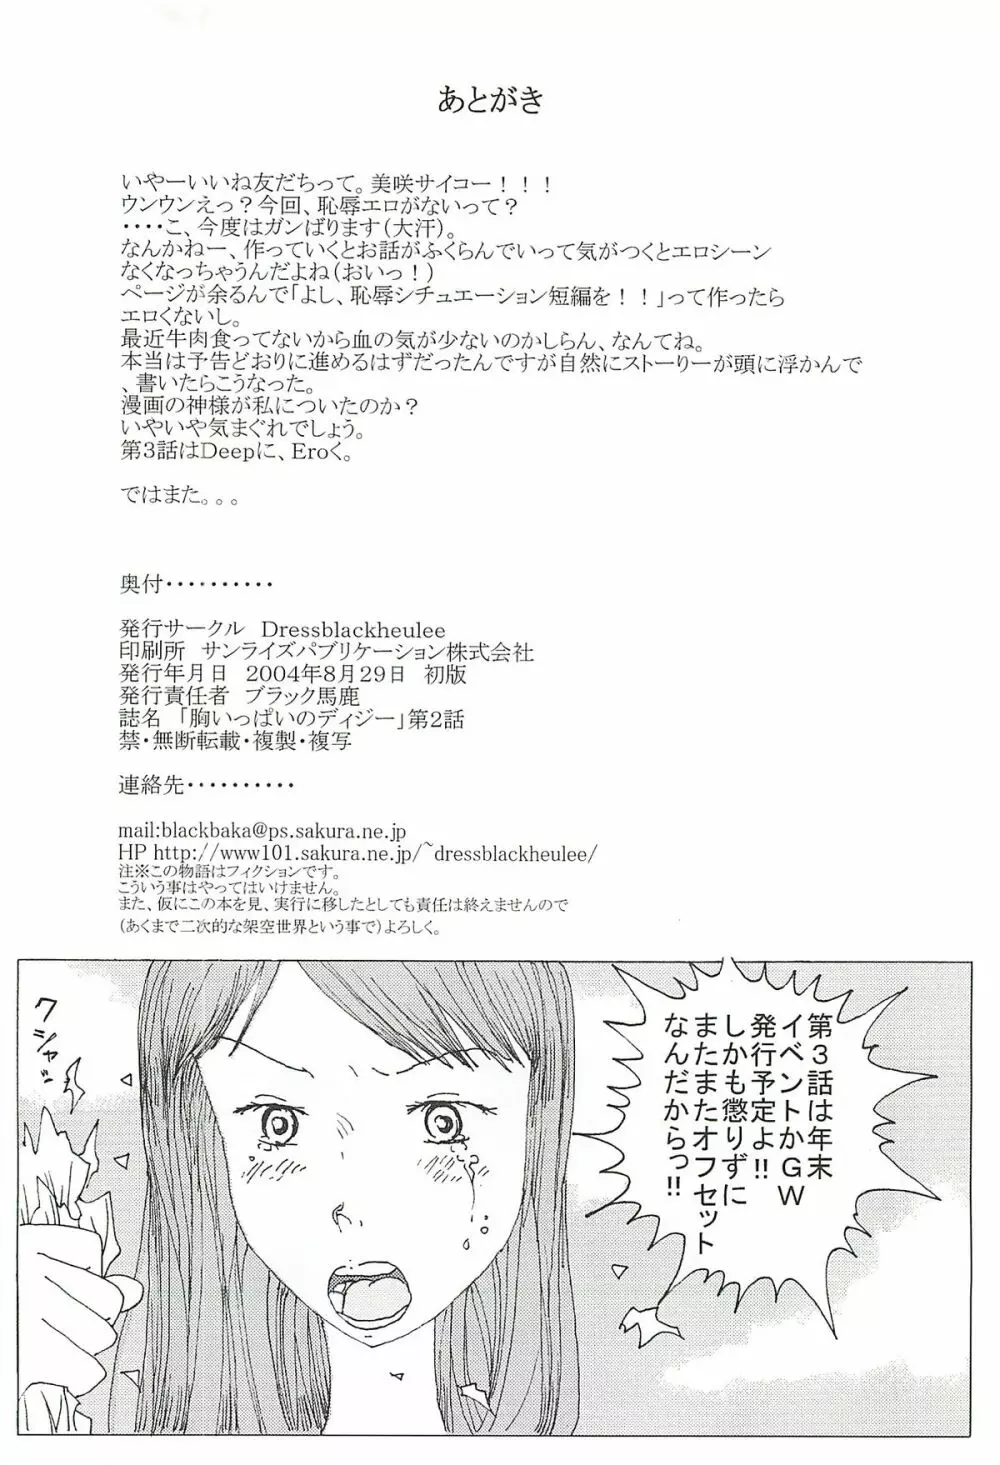 あとがき
いやーいいね友だちって。美咲サイコー！！！
ウンウンえっ？今回、恥辱エロがないって？
・・・・こ、今度はガンばります（大汗）。
なんかねー、作っていくとお話がふくらんでいって気がつくとエロシーン
なくなっちゃうんだよね（おいっ！）
ページが余るんで「よし、恥辱シチュエーション短編を！！」って作ったら
エロくないし。
最近牛肉食ってないから血の気が少ないのかしらん、なんてね。
本当は予告どおりに進めるはずだったんですが自然にストーリーが頭に浮かんで
、書いたらこうなった。
漫画の神様が私についたのか？
いやいや気まぐれでしょう。
第３話はDeepに、Eroく。
ではまた。。。
奥付・・・・・・・・・・
発行サークル　Dressblackheulee
印刷所　サンライズパブリケーション株式会社
発行年月日　２００４年８月２９日　初版
発行責任者　ブラック馬鹿
誌名　「胸いっぱいのディジー」第２話
禁・無断転載・複製・複写
連絡先・・・・・・・・・・
mail:blackbaka@ps.sakura.ne.jp
HP http://www101.sakura.ne.jp/~dressblackheulee/
注※この物語はフィクションです。
こういう事はやってはいけません。
また、仮にこの本を見、実行に移したとしても責任は終えませんので
（あくまで二次的な架空世界という事で）よろしく。
第３話は年末
イベントかＧＷ
発行予定よ!!
しかも懲りずに
またまたオフセット
なんだからっ!!
クシャッ